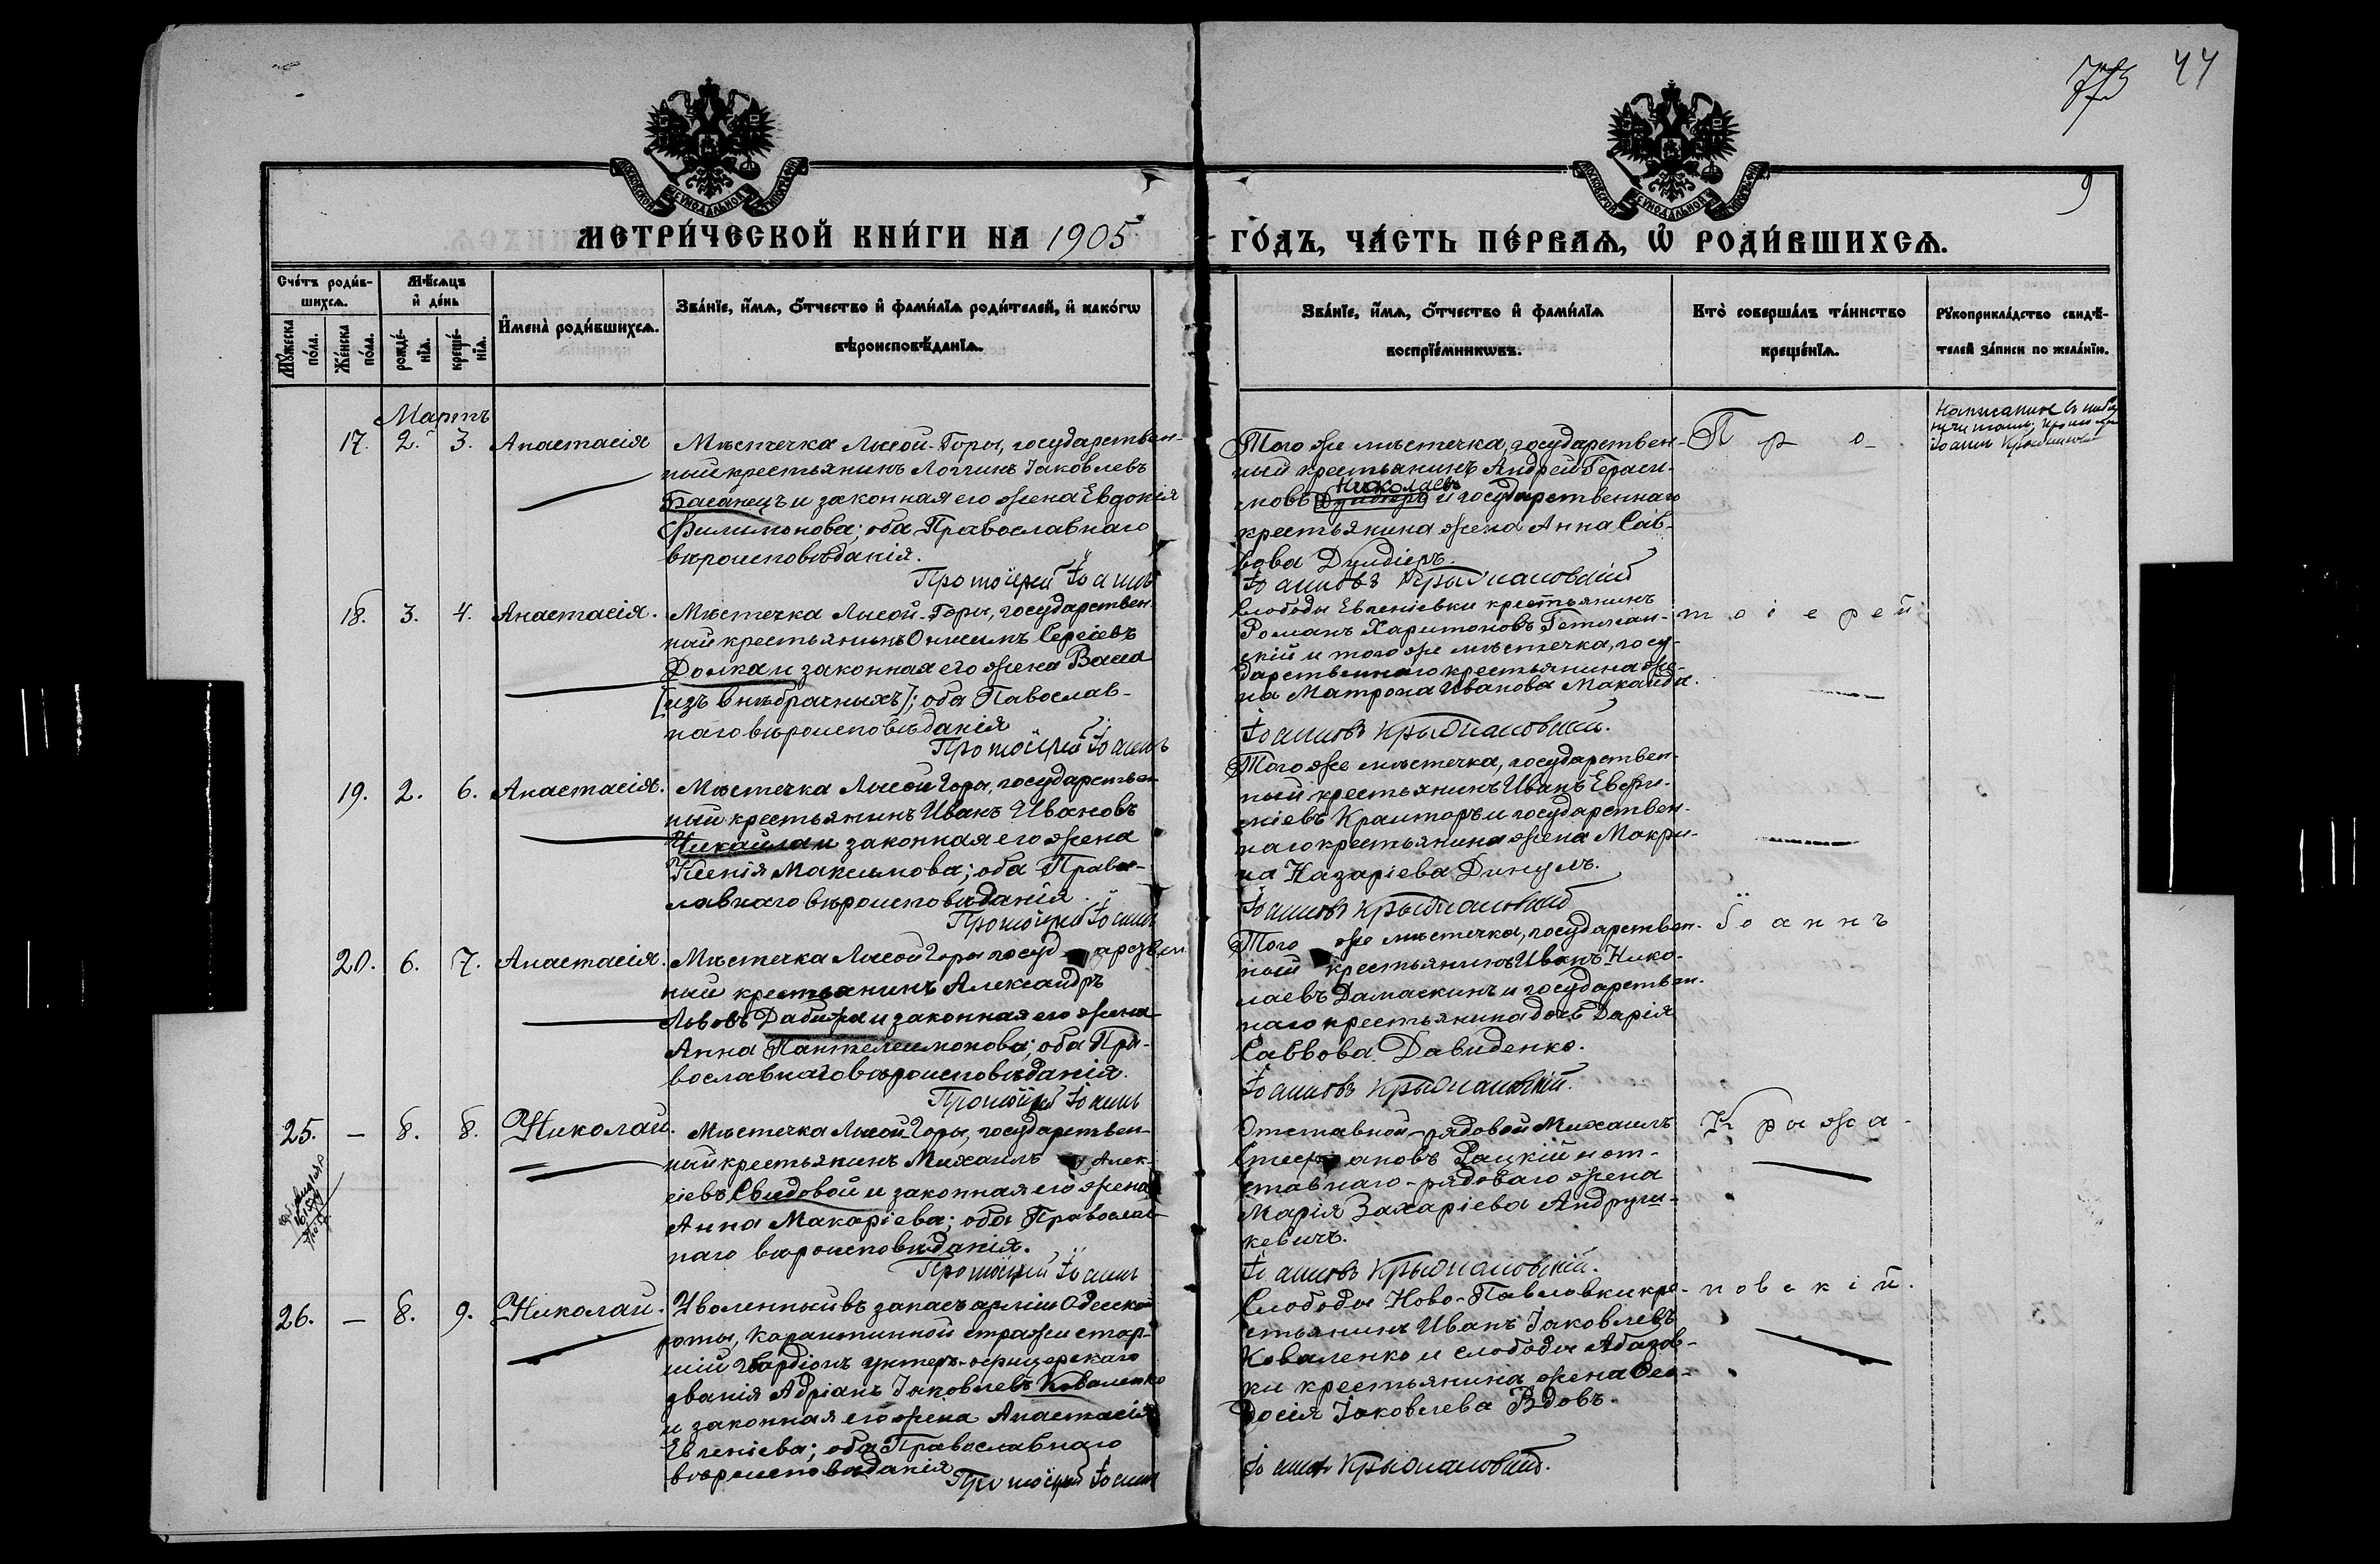 44
9
МЕТРИ́ЧЕСКОЙ КНИ́ГИ НА 1905
ГО́ДЪ, ЧА́СТЬ ПЕ́РВАѦ, Ѽ РОДИ́ВШИХСѦ.
Сче́тъ роди́в-
шихсѧ.
Мꙋ́жеска по́ла.
Же́нска по́ла.
Мѣ́сѧцъ
и҆ де́нь
рожде́-нїѧ.
креще́-нїѧ.
И҆мена̀ роди́вшихсѧ.
Зва́нїе, и҆́мѧ, ѻ҆́тчество и҆ фами́лїѧ роди́телей, и҆ како́гѡ
вѣроисповѣ́данїѧ.
Зва́нїе, и҆́мѧ, ѻ҆́тчество и҆ фами́лїѧ
воспрїе́мникѡвъ.
Кто̀ соверша́лъ та́инство
креще́нїѧ.
Рꙋкоприкла́дство свидѣ́-
телей за́писи по жела́нїю.
Мартъ
17. 2. 3. Анастасія
Мѣстечка Лысой-Горы, государствен-
ный крестьянинъ Логгинъ Іаковлевъ
Басанецъ и законная его жена Евдокія
Филимонова; оба Православнаго
вѣроисповѣданія.
Протоіерей Іоаннъ
Того же мѣстечка, государствен-
ный крестьянинъ Андрей Гераси-
Николаевъ
мовъ и государственнаго
крестьянина жена Анна Сав-
вова Дулдіеръ.
Іоанновъ Крыжановскій
Про-
18. 3. 4. Анастасія.
Мѣстечка Лысой-Горы, государствен-
ный крестьянинъ Онисимъ Сергіевъ
Долка и законная его жена Васса
[изъ внѣбрачныхъ]; оба Павослав-
наго вѣроисповѣданія
Протоіерей Іоаннъ
Слободы Евгеніевки крестьянинъ
Романъ Харитоновъ Гетман-
скій и того же мѣстечка, госу-
дарственнаго крестьянина же-
на Матрона Иванова Маканда.
Іоанновъ Крыжановскій.
тоіерей
19. 2. 6. Анастасія.
Мѣстечка Лысой Горы, государствен-
ный крестьянинъ Иванъ Ивановъ
Чикайла и законная его жена
Ксенія Максимова; оба Правос-
лавнаго вѣроисповѣданія.
Протоіерей Іоаннъ
Того же мѣстечка, государствен-
ный крестьянинъ Иванъ Евфи-
міевъ Краиторъ и государствен-
наго крестьянина жена Макри-
на Назаріева Динулъ.
Іоанновъ Крыжановскій
20. 6. 7. Анастасія.
Мѣстечка Лысой Горы государствен-
ный крестьянинъ Александръ
Львовъ Дабижа и законная его жена
Анна Пантелеимонова; оба Пра-
вославнаго вѣроисповѣданія.
Протоіерей Іоаннъ
Того же мѣстечка, государствен-
ный крестьянинъ Иванъ Нико-
лаевъ Дамаскинъ и государствен-
наго крестьянина дочь Дарія
Саввова Давиденко.
Іоанновъ Крыжановскій.
Іоаннъ
25. — 8. 8. Николай.
Мѣстечка Лысой-Горы, государствен-
ный крестьянинъ Михаилъ Алек-
сіевъ Свидовой и законная его жена
Анна Макаріева; оба Православ-
наго вѣроисповѣданія.
Протоіерей Іоаннъ
Отставной-рядовой Михаилъ
Стефановъ Рацкій и от-
ставнаго-рядоваго жена
Марія Захаріева Андруш-
кевичъ.
Іоанновъ Крыжановскій.
Крыжа-
26. — 8. 9. Николай.
Уволенный въ запасъ арміи Одесской
роты, карантинной стражи стар-
шій гвардіонъ унтеръ-офицерскаго
званія Адріанъ Іаковлевъ Коваленко
и законная его жена Анастасія
Евгеніева; оба Православнаго
вѣроисповѣданія
Протоіерей Іоаннъ
Слободы Ново-Павловки кре-
стьянинъ Иванъ Іаковлевъ
Коваленко и слободы Абазов-
ки крестьянина жена Фео-
досія Іаковлева Вдовъ.
Іоаннъ Крыжановскій.
новскій.